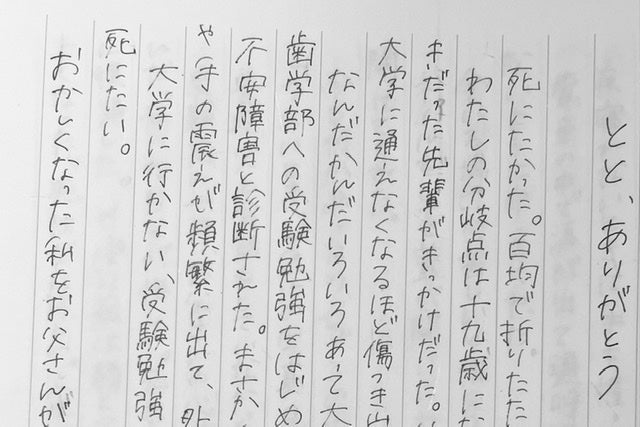 とと、ありがとう
死にたかった。百均で折りたた
わたしの分岐点は十九歳にな
きだった先輩がきっかけだった。い
大学に通えなくなるほど傷つき
なんだかんだいろいろあって大
歯学部への受験勉強をはじめ
不安障害と診断された。まさか
や手の震えが頻繁に出て、外
大学に行かない、受験勉強
死にたい。
おかしくなった私をお父さんが